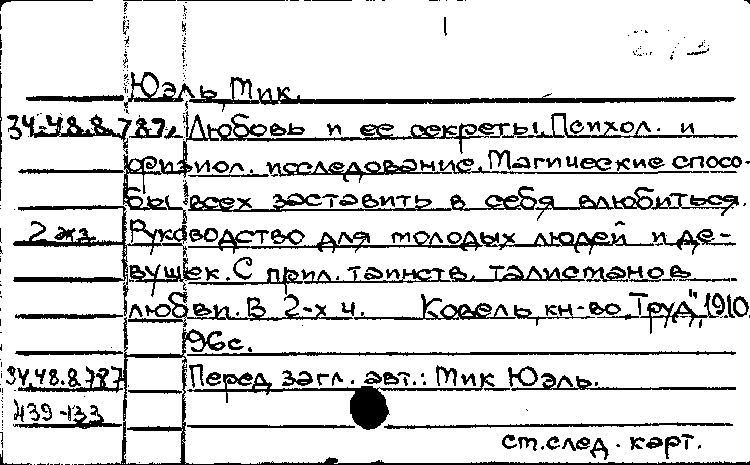 Юэль, Мик.
34.48.8.787, Любовь и ее секреты. Психол. и
физиол. исследование. Магические спосо-
бы всех заставить в себя влюбиться.
2 экз Руководство для молодых людей и де-
вушек. С прил. таинств. талисманов
любви. В 2-х ч. Ковель, кн-во „Труд", 1910.
96с.
34.48.8.787 Перед загл. авт.: Мик Юэль.
439-133
ст.след. карт.